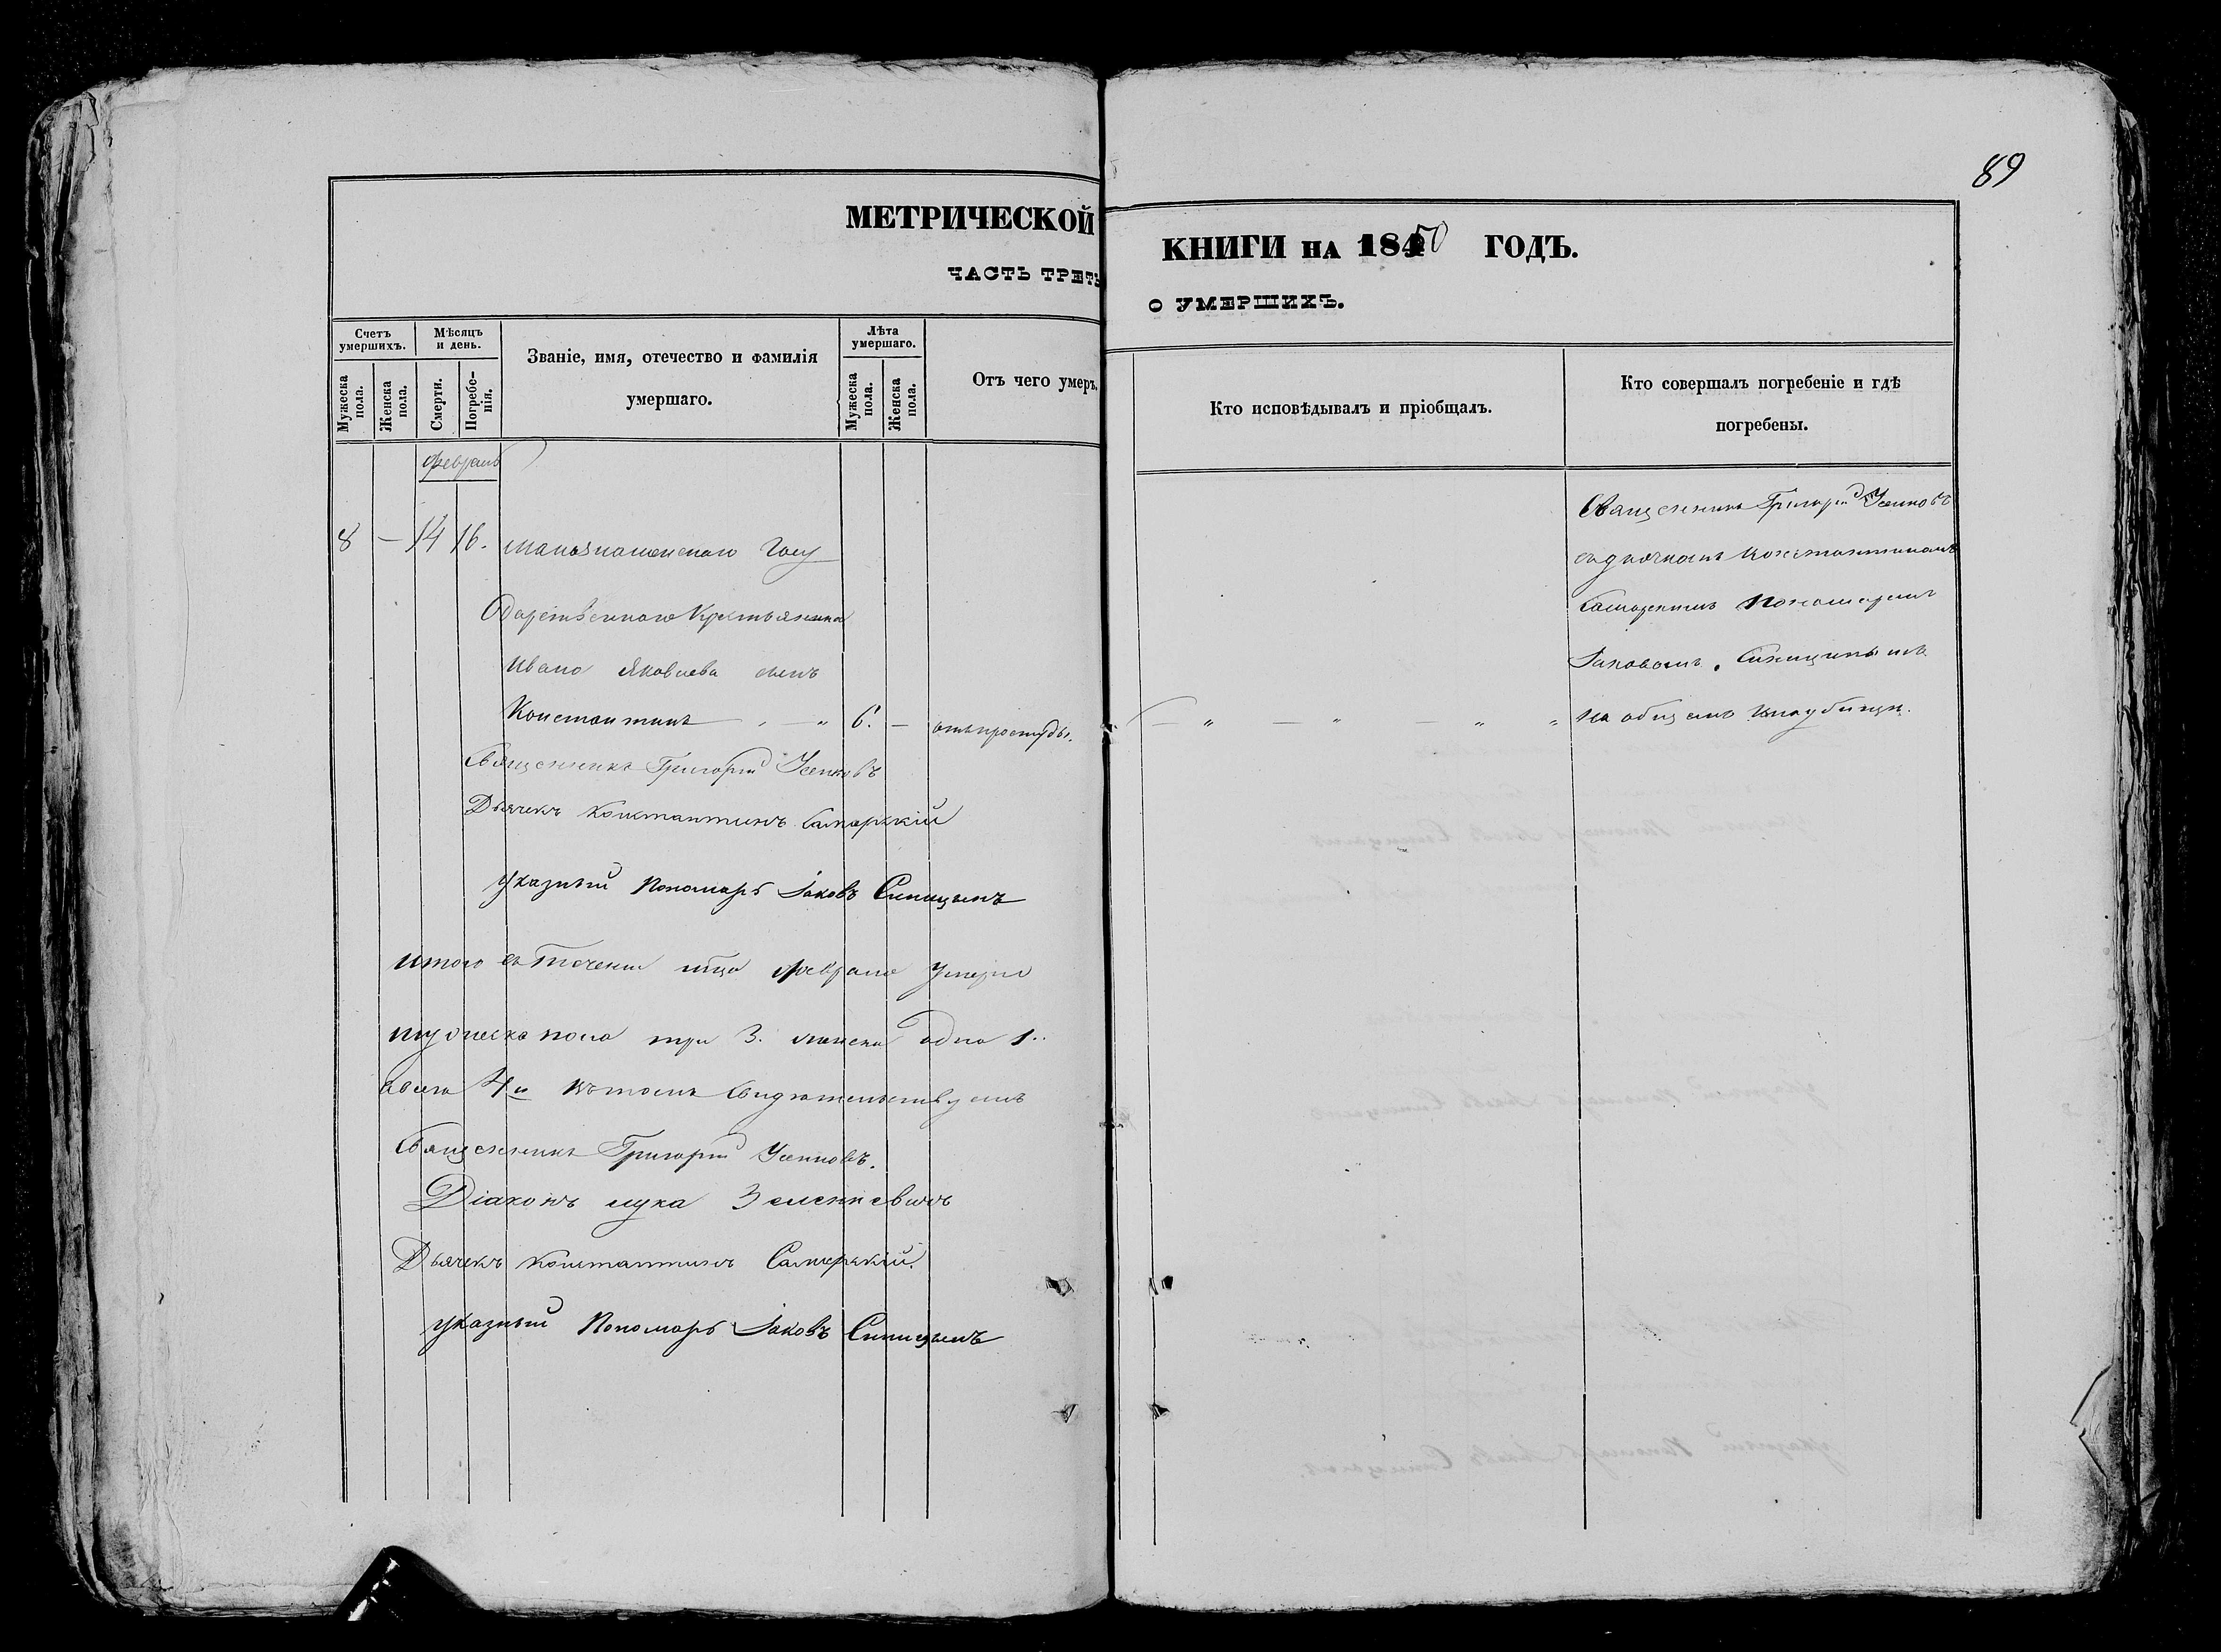 89
МЕТРИЧЕСКОЙ
ЧАСТЬ ТРЕТЬ
КНИГИ НА 1850 ГОДЪ.
О УМЕРШИХЪ.
Счетъ умершихъ.
Мѣсяцъ и день.
Званіе, имя, отечество и фамилія
умершаго.
Лѣта умершаго.
Отъ чего умеръ.
Кто исповѣдывалъ и пріобщалъ.
Кто совершалъ погребеніе и гдѣ
погребены.
Мужеска пола.
Женска пола.
Смерти.
Погребенія.
Мужеска пола.
Женска пола.
февраль
8 — 14 16.
Госу
Дарственного Крестьянина
Ивана Яковлева сынъ
Константинъ — „ — „ 6. — отъ простуды. — „ — „ — „ „
Священникъ Григорій Усенковъ
съ дьячкомъ Константиномъ
Самарскимъ Пономаремъ
Іаковомъ Синицинымъ
на общемъ кладбищи.
Священникъ Григорій Усенковъ
Дьячекъ Константинъ Самарскій
указный Пономарь Іаковъ Синицынъ
итого въ течении мца февраля умерло
мужеска пола три 3. женска одна 1..
всего 4и въ томъ свидѣтельствуемъ
Священникъ Григорій Усенковъ.
Діаконъ лука Зеленкевичъ
Дьячекъ Константинъ Самарскій.
указный Пономарь Іаковъ Синицынъ